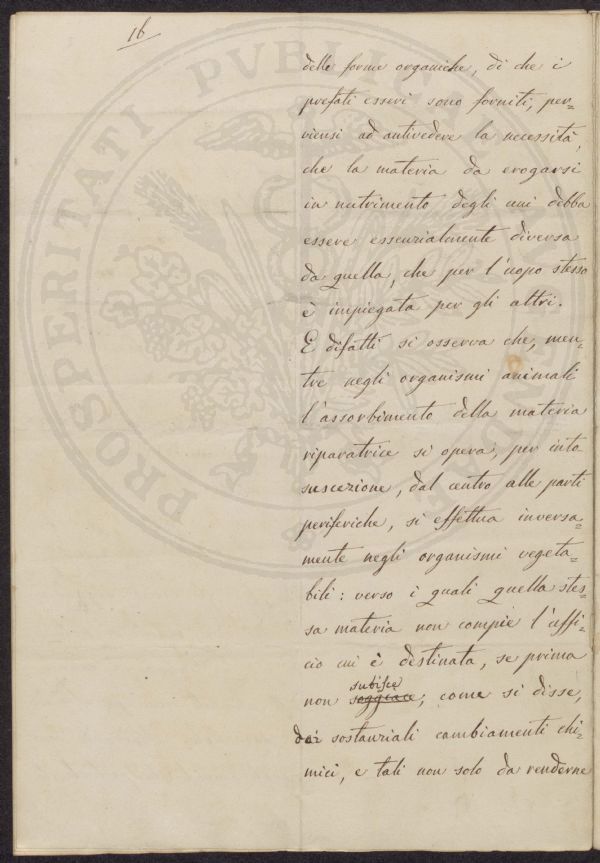 16
delle forme organiche, di che i
prefati esseri sono forniti, per-
viensi ad antivedere la necessità,
che la materia da erogarsi
in nutrimento degli uni debba
essere essenzialmente diversa
da quella, che per l'uopo stesso
è impiegata per gli altri.
E difatti si osserva che, men-
tre negli organismi animali
l'assorbimento della materia
riparatrice si opera, per into
suscezione, dal centro alle parti
periferiche, si effettua inversa-
mente negli organismi vegeta-
bili: verso i quali quella stes-
sa materia non compie l'uffi-
cio cui è destinata, se prima
subisce
non soggiace, come si disse,
dei sostanziali cambiamenti chi-
mici, e tali non solo da renderne
PROSPERITATI PVBLICAE